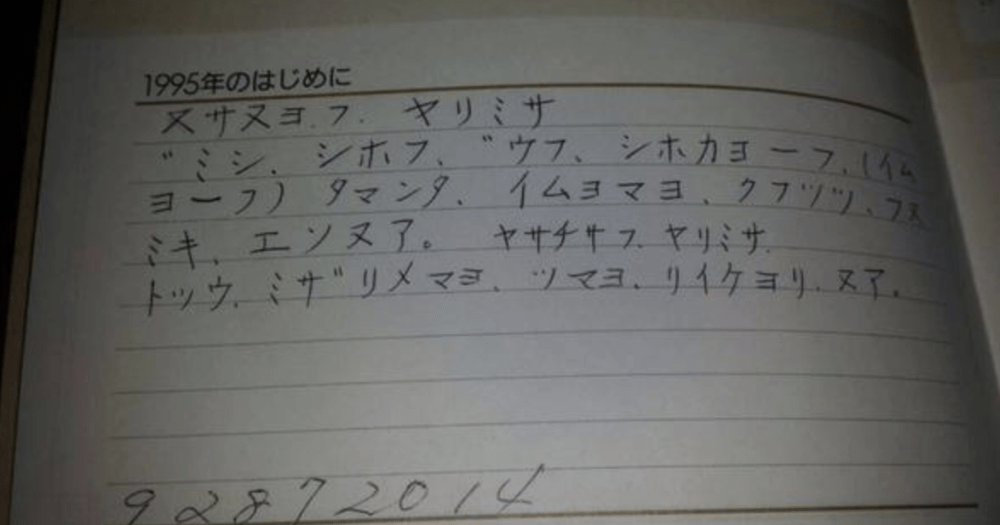 1995年のはじめに
ヌサヌヨ.フ. ヤリミサ
゛ミシ、シホフ、゛ウフ、シホカヨーフ、(イム
ヨーフ) タマンタ、イムヨマヨ、クフツツ、フヌ
ミキ、エソヌア。 ヤサチサフ ヤリミサ.
トツウ、ミサ゛リメマヨ、ツマヨ、リイケヨリ.ヌア.
92872014